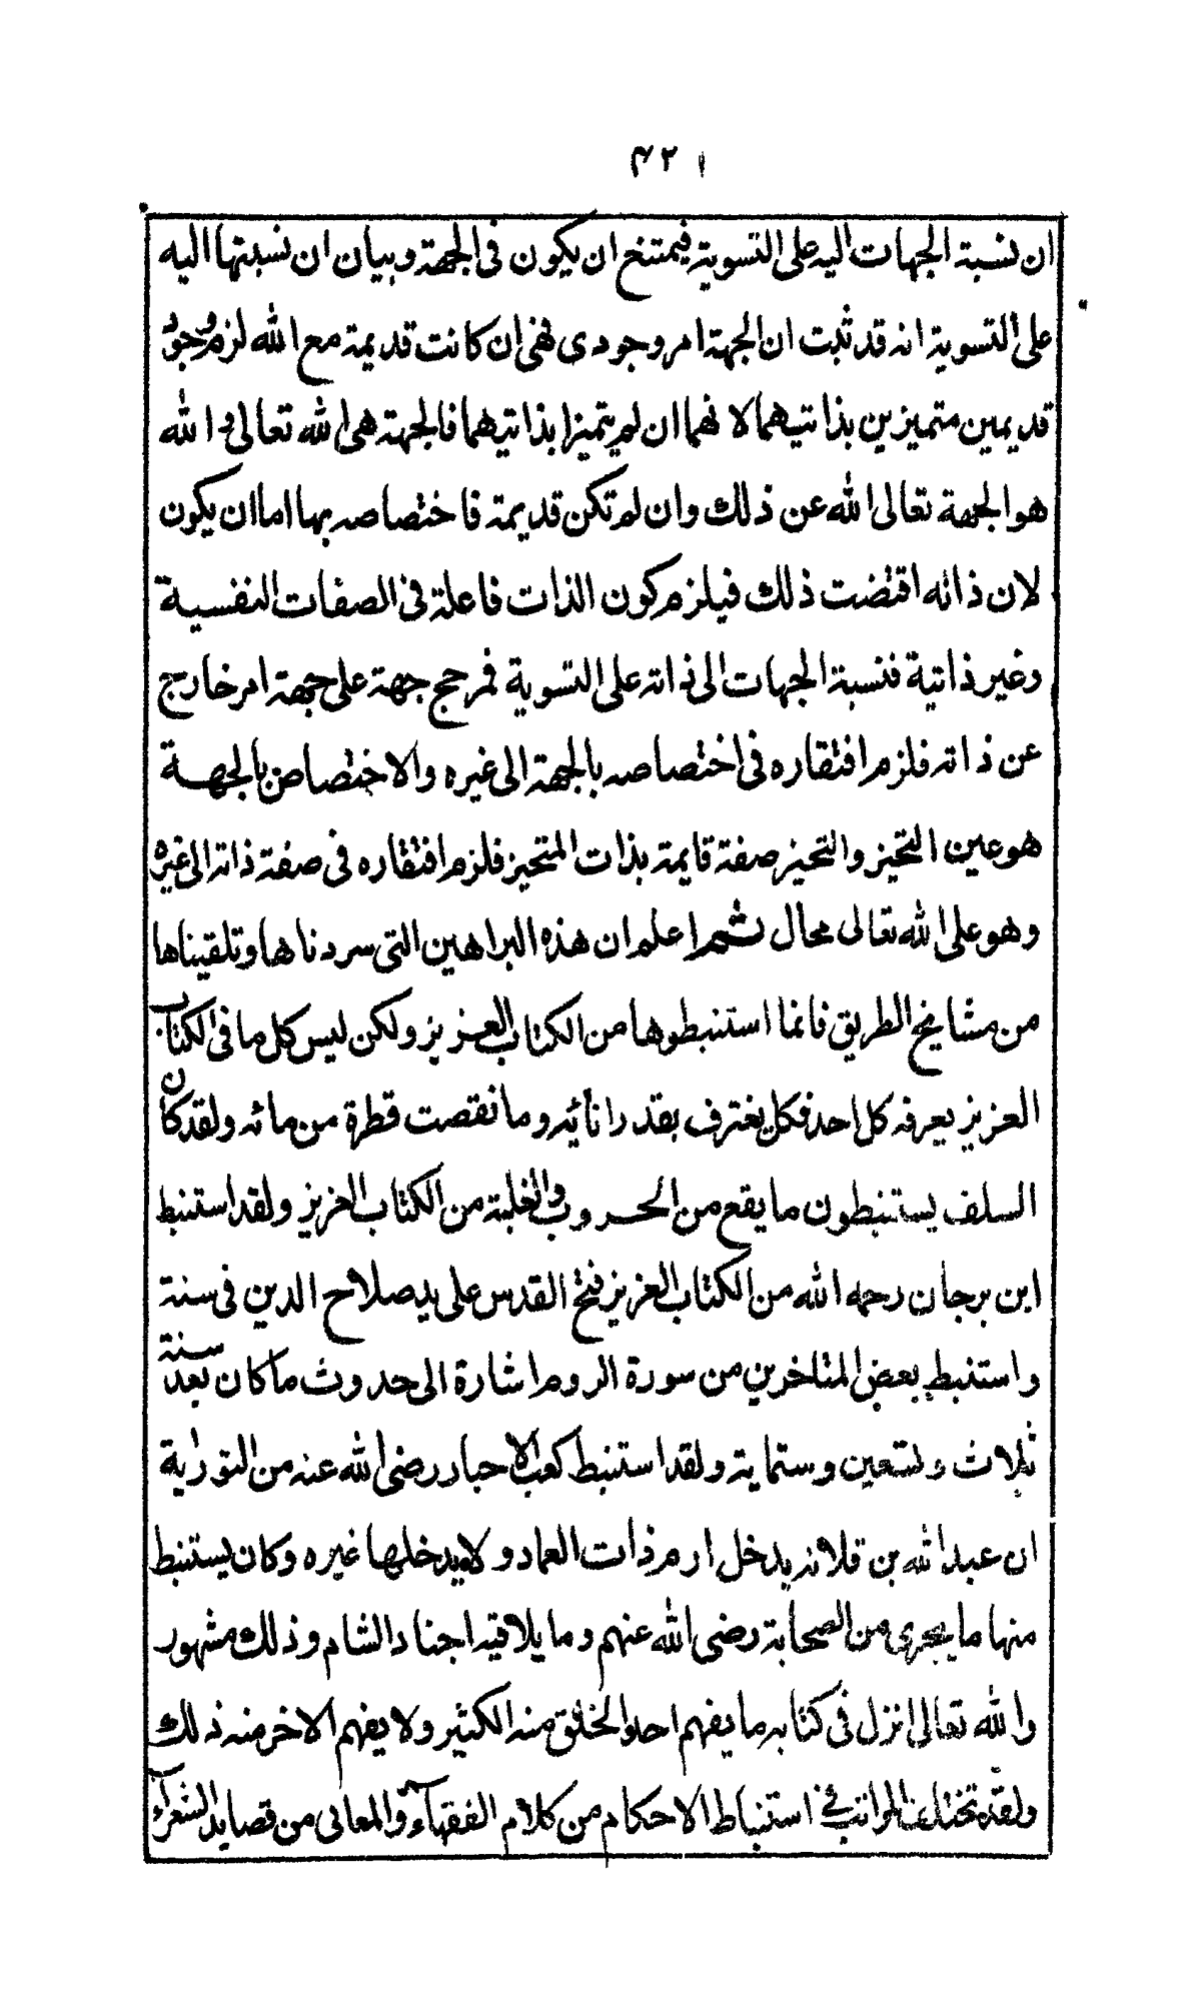 ٤٢١
ان نسبة الجهات اليه على التسوية فيمتنع ان يكون فى الجهة وبيان ان نسبتها اليه
على التسوية انه قد ثبت ان الجهة امر وجودى فهى ان كانت قديمة مع الله لزم وجود
قديمين متميزين بذاتيهما لانهما ان لم يتميزا بذاتيهما فالجهة هى الله تعالى والله
هو الجهة تعالى الله عن ذلك وان لم تكن قديمة فاختصاصه بها اما ان يكون
لان ذاته اقتضت ذلك فيلزم كون الذات فاعلة فى الصفات النفسية
وغير ذاتية فنسبة الجهات الى ذاته على التسوية فمرجح جهة على جهة امر خارج
عن ذاته فلزم افتقاره فى اختصاصه بالجهة الى غيره والاختصاص بالجهة
هو عين التحيز والتحيز صفة قايمة بذات المتحيز فلزم افتقاره فى صفة ذاته الى غيره
وهو على الله تعالى محال ثم اعلم ان هذه البراهين التى سردناها وتلقيناها
من مشايخ الطريق فانما استنبطوها من الكتاب العزيز ولكن ليس كل ما فى الكتاب
العزيز يعرفه كل احد فكل يغترف بقدر انائه وما نقصت قطرة من مائه ولقد كان
السلف يستنبطون ما يقع من الحروب والغلبة من الكتاب العزيز ولقد استنبط
ابن برجان رحمه الله من الكتاب العزيز فتح القدس على يد صلاح الدين فى سنة
واستنبط بعض المتاخرين من سورة الروم اشارة الى حدوث ما كان بعد سنة
ثلاث وتسعين وستماية ولقد استنبط كعب الاحبار رضى الله عنه من التوراية
ان عبد الله بن قلانه يدخل ارم ذات العماد ولا يدخلها غيره وكان يستنبط
منها ما يجرى من الصحابة رضى الله عنهم وما يلاقيه اجناد الشام وذلك مشهور
والله تعالى انزل فى كتابه ما يفهم احد الخلق منه الكثير ولا يفهم الاخر منه ذلك
ولقد تختلف المراتب فى استنباط الاحكام من كلام الفقهاء والمعانى من قصايد الشعراء